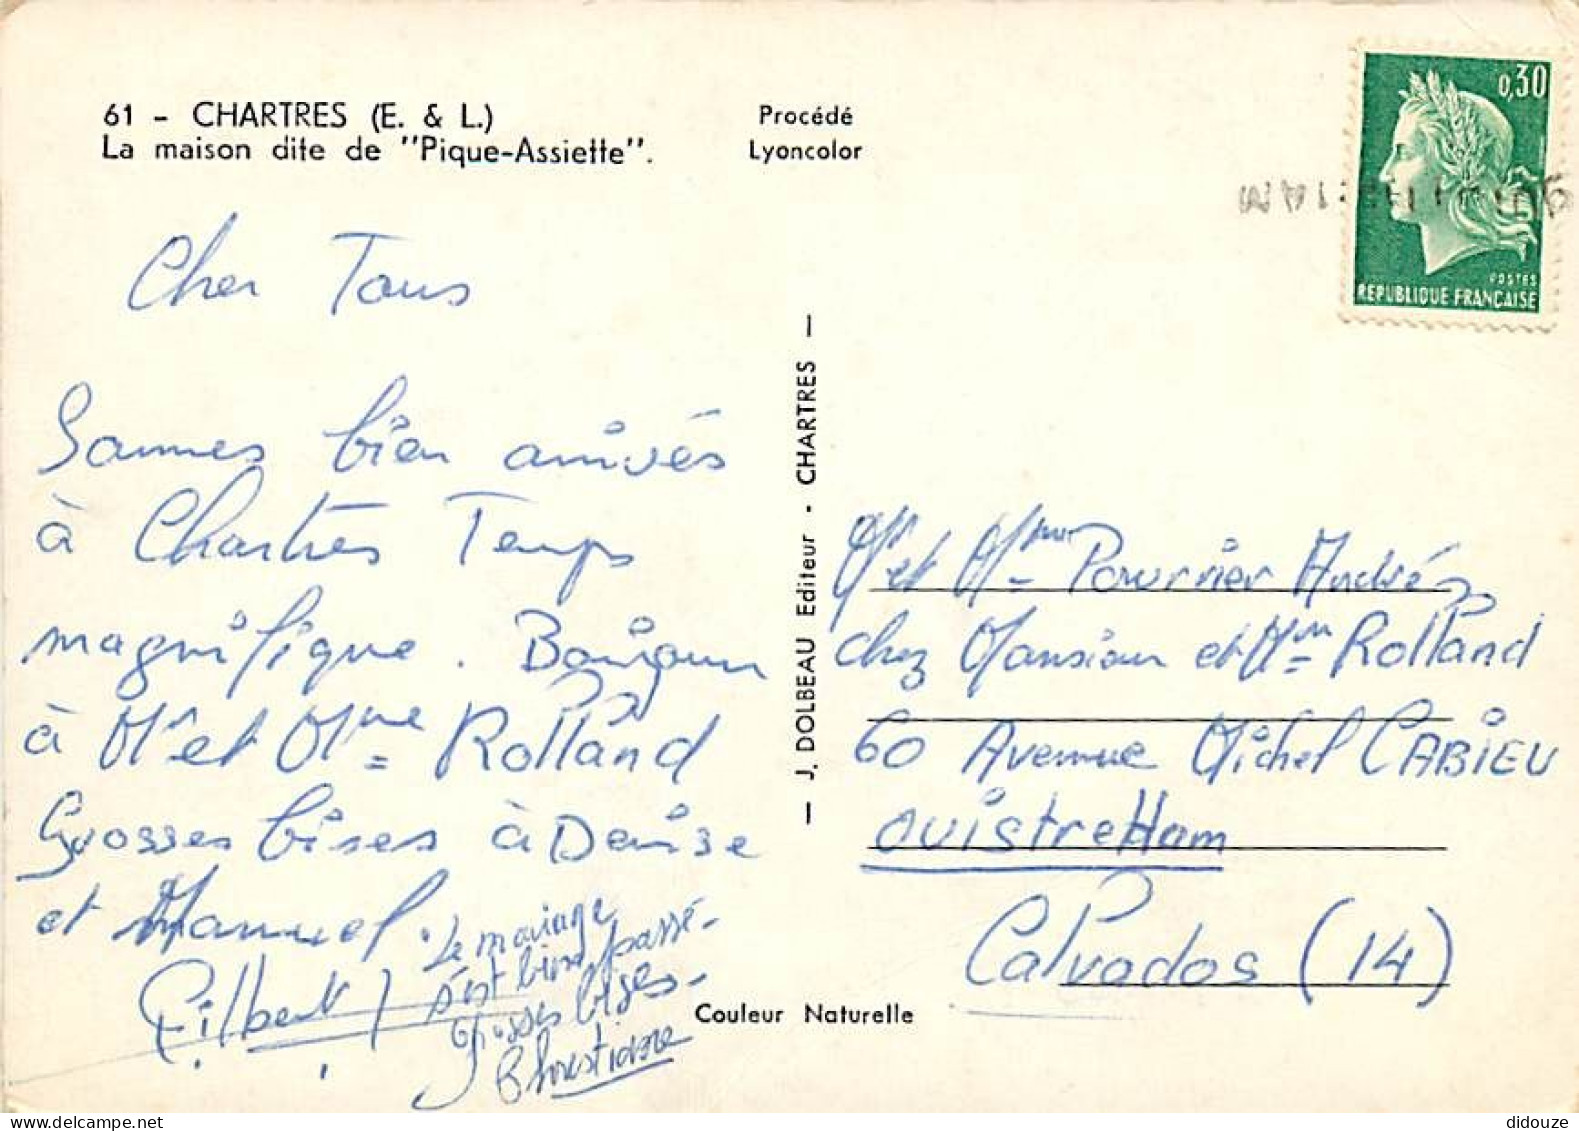 61 - CHARTRES (E. & L.)
La maison dite de "Pique-Assiette".
Procédé
Lyoncolor
0,30
POSTES
REPUBLIQUE FRANÇAISE
Cher Tous
Sommes bien arrivés
à Chartres Temps
magnifique. Bonjour
à Mr et Mme Rolland
Grosses bises à Denise
et Manuel.
Gilbert
Le mariage
s'est bien passé-
Grosses bises-
Christiane
— J. DOLBEAU Editeur - CHARTRES —
Mr et Mme Pourrier André
chez Monsieur et Mme Rolland
60 Avenue Michel CABIEU
OuistreHam
Calvados (14)
Couleur Naturelle
delcampe.net
didouze